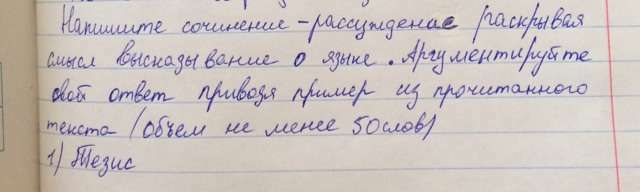 Напишите сочинение-рассуждение раскрывая
смысл высказывание о языке. Аргументируйте
свой ответ приводя пример из прочитанного
текста (Объем не менее 50слов)
1) Тезис